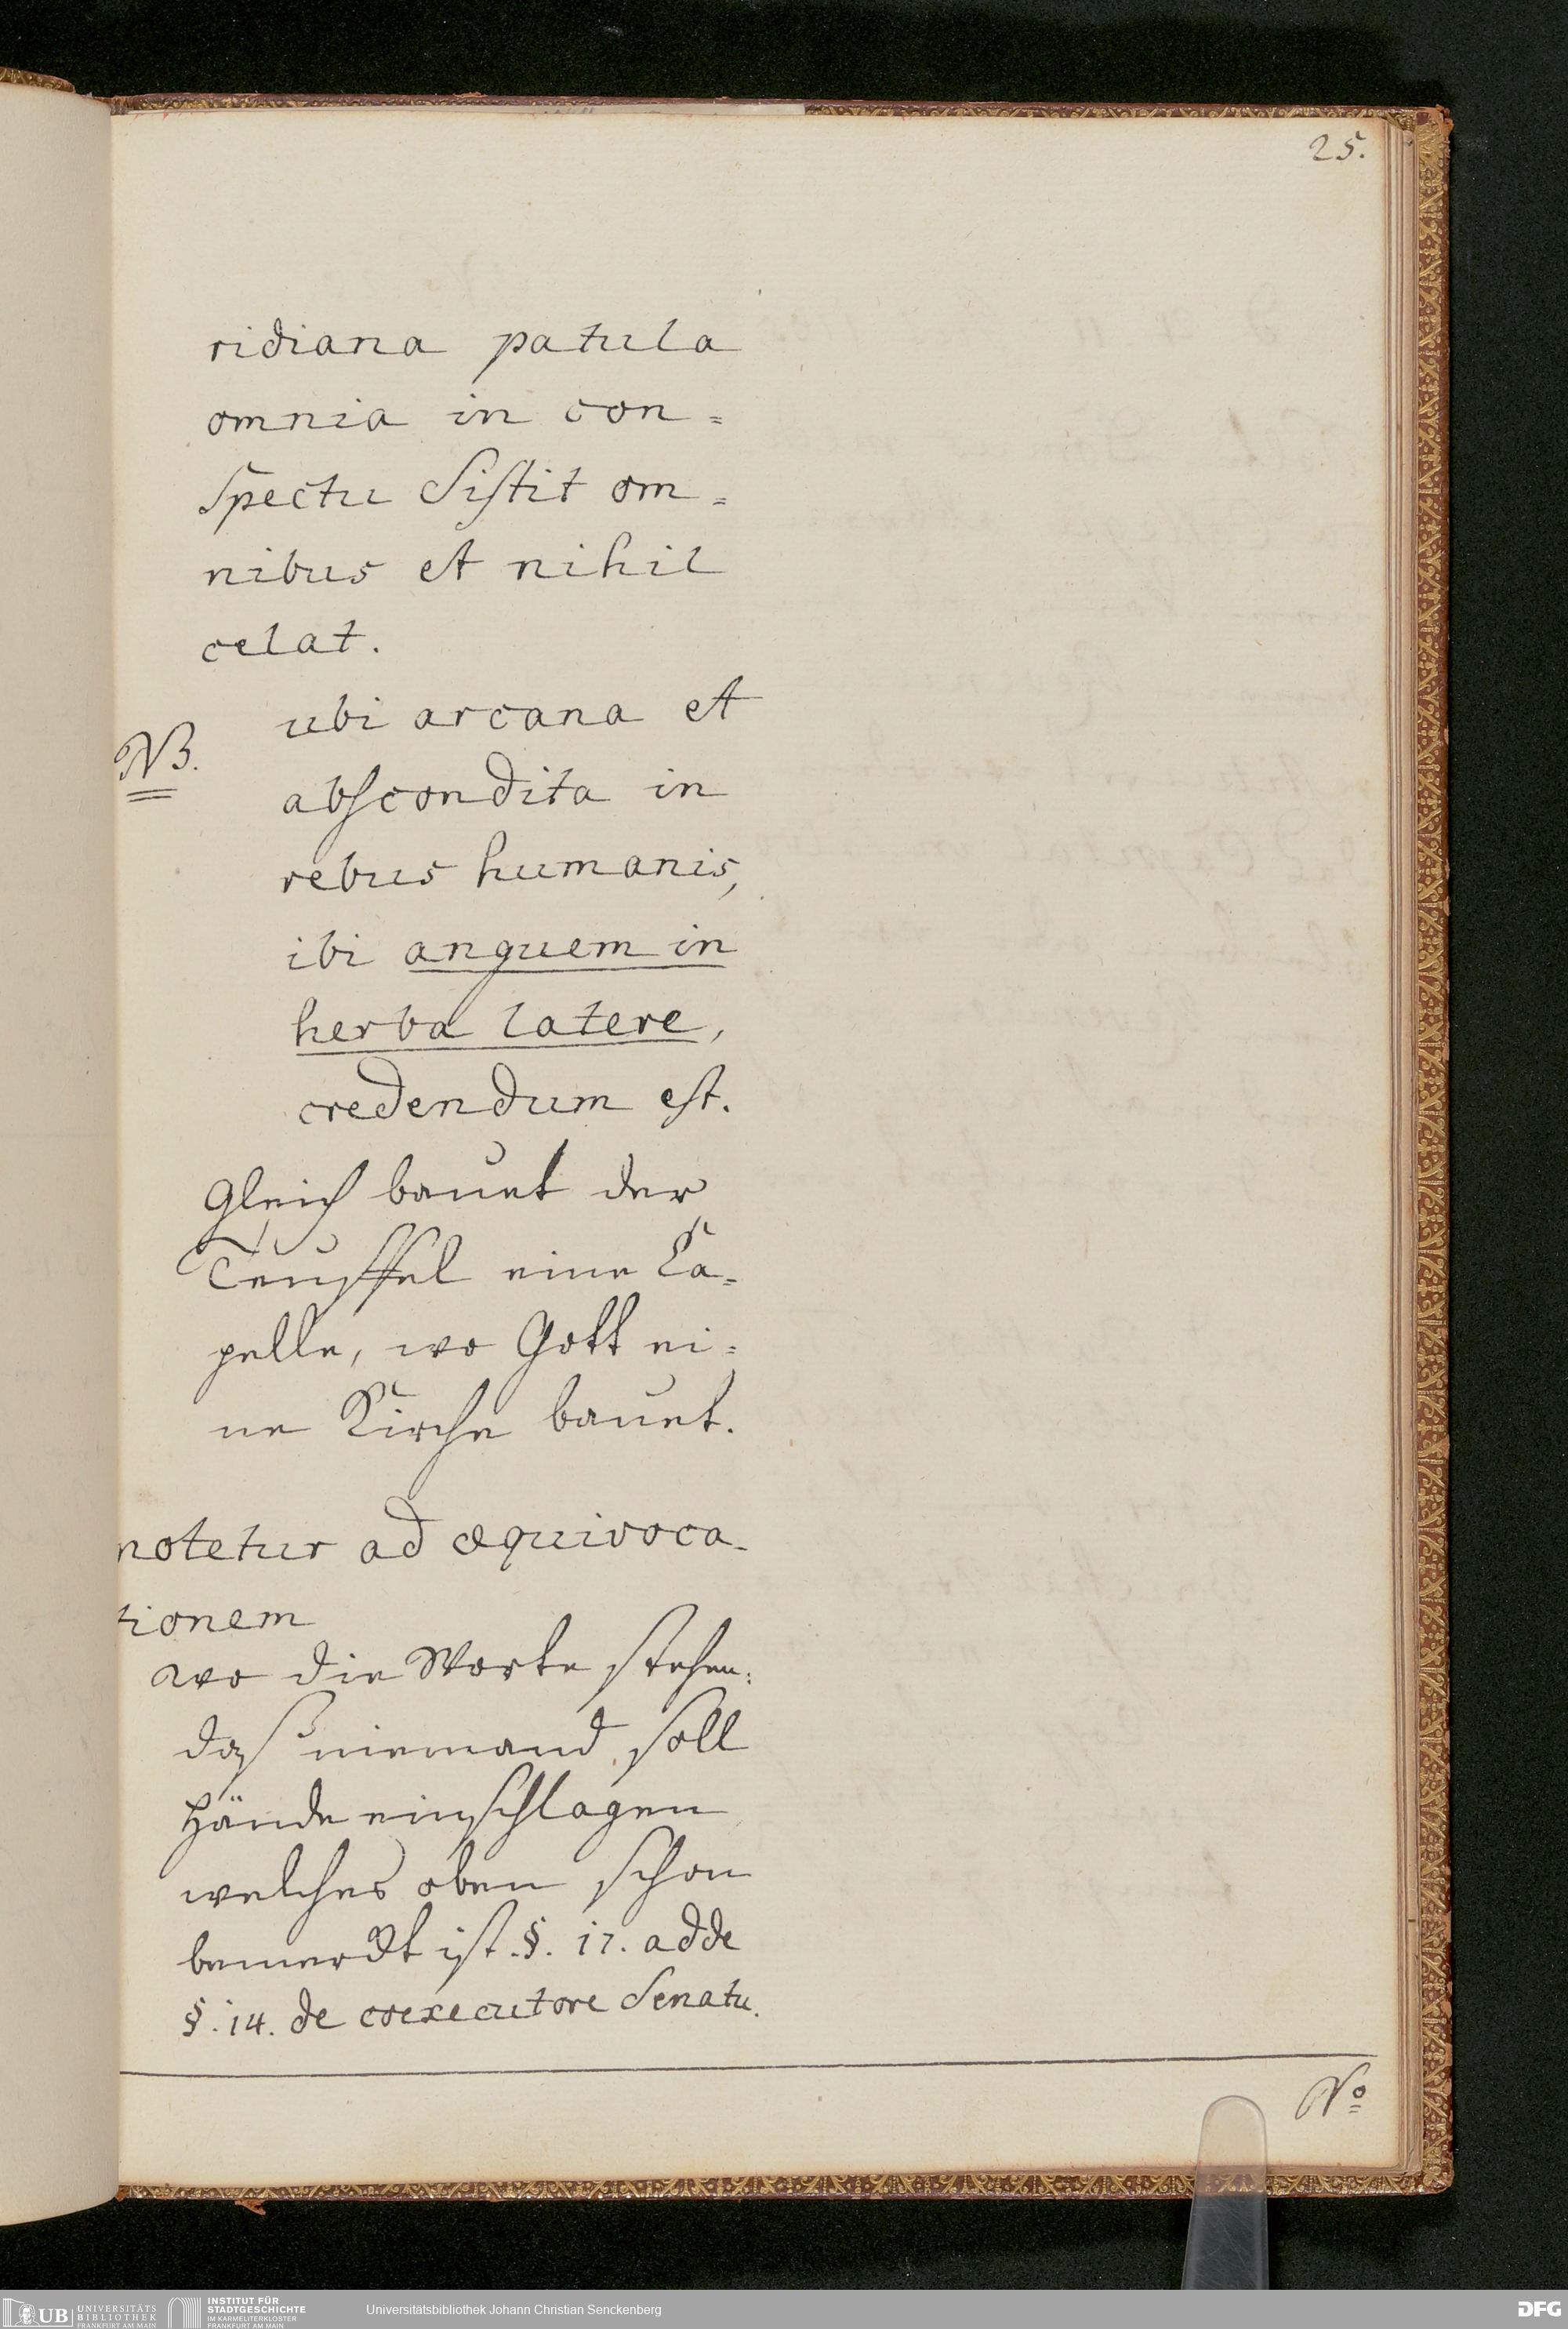 25.
ridiana patula
omnia in con=
spectu sistit om=
nibus et nihil
celat.
NB.
ubi arcana et
abscondita in
rebus humanis,
ibi anguem in
herba latere,
credendum est.
Gleich bauet der
Teuffel eine Ca=
pelle, wo Gott ei=
ne Kirche bauet.
notetur ad æquivoca-
tionem
wo die Worte stehen:
daß niemand soll
Hände einschlagen
welches oben schon
bemerckt ist. §. 17. adde
§. 14. de coexecutore Senatu.
No
UB UNIVERSITÄTS
BIBLIOTHEK
FRANKFURT AM MAIN
INSTITUT FÜR
STADTGESCHICHTE
IM KARMELITERKLOSTER
FRANKFURT AM MAIN
Universitätsbibliothek Johann Christian Senckenberg
DFG